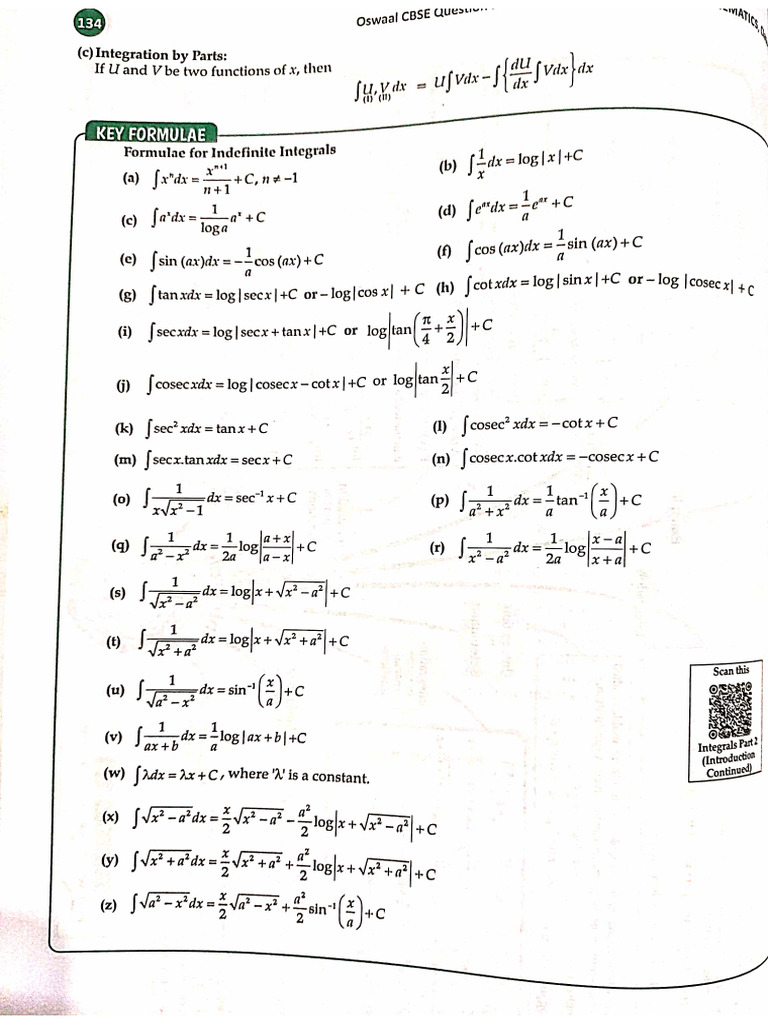 134
Oswaal CBSE Question
(c) Integration by Parts:
If U and V be two functions of x, then
∫U.V dx = U∫Vdx − ∫{dU/dx ∫Vdx}dx
(I) (II)
KEY FORMULAE
Formulae for Indefinite Integrals
(a) ∫xⁿdx = xⁿ⁺¹/(n+1) + C, n ≠ −1
(b) ∫1/x dx = log|x|+C
(c) ∫aˣdx = 1/(log a) aˣ + C
(d) ∫eᵃˣdx = 1/a eᵃˣ + C
(e) ∫sin (ax)dx = −1/a cos (ax) + C
(f) ∫cos (ax)dx = 1/a sin (ax) + C
(g) ∫tan xdx = log|sec x|+C or − log|cos x| + C
(h) ∫cot xdx = log|sin x|+C or − log |cosec x| + C
(i) ∫sec xdx = log|sec x + tan x|+C or log|tan(π/4 + x/2)| + C
(j) ∫cosec xdx = log|cosec x − cot x|+C or log|tan x/2| + C
(k) ∫sec² xdx = tan x + C
(l) ∫cosec² xdx = −cot x + C
(m) ∫sec x.tan xdx = sec x + C
(n) ∫cosec x.cot xdx = −cosec x + C
(o) ∫1/(x√(x² −1)) dx = sec⁻¹ x + C
(p) ∫1/(a² + x²) dx = 1/a tan⁻¹(x/a) + C
(q) ∫1/(a² − x²) dx = 1/2a log|(a + x)/(a − x)| + C
(r) ∫1/(x² − a²) dx = 1/2a log|(x − a)/(x + a)| + C
(s) ∫1/√(x² − a²) dx = log|x + √(x² − a²)| + C
(t) ∫1/√(x² + a²) dx = log|x + √(x² + a²)| + C
(u) ∫1/√(a² − x²) dx = sin⁻¹(x/a) + C
(v) ∫1/(ax + b) dx = 1/a log|ax + b|+C
(w) ∫λdx = λx + C, where 'λ' is a constant.
(x) ∫√(x² − a²)dx = x/2 √(x² − a²) − a²/2 log|x + √(x² − a²)| + C
(y) ∫√(x² + a²)dx = x/2 √(x² + a²) + a²/2 log|x + √(x² + a²)| + C
(z) ∫√(a² − x²)dx = x/2 √(a² − x²) + a²/2 sin⁻¹(x/a) + C
Scan this
Integrals Part 2
(Introduction
Continued)